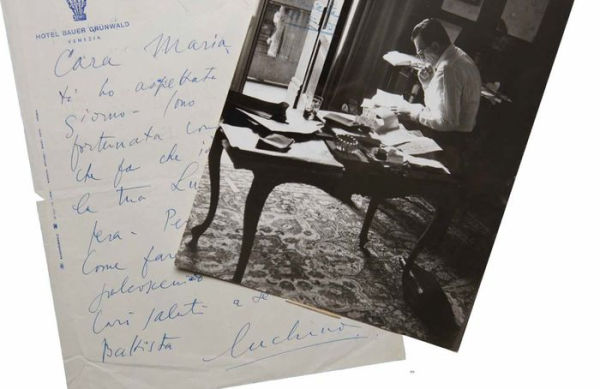 HOTEL BAUER GRÜNWALD
VENEZIA
Cara Maria
ti ho aspettata
giorno - sono
fortunata
che fa che
la tua Lu
sera - Pe
Come far
palcoscenico
Cari saluti a te
Battista
Luchino